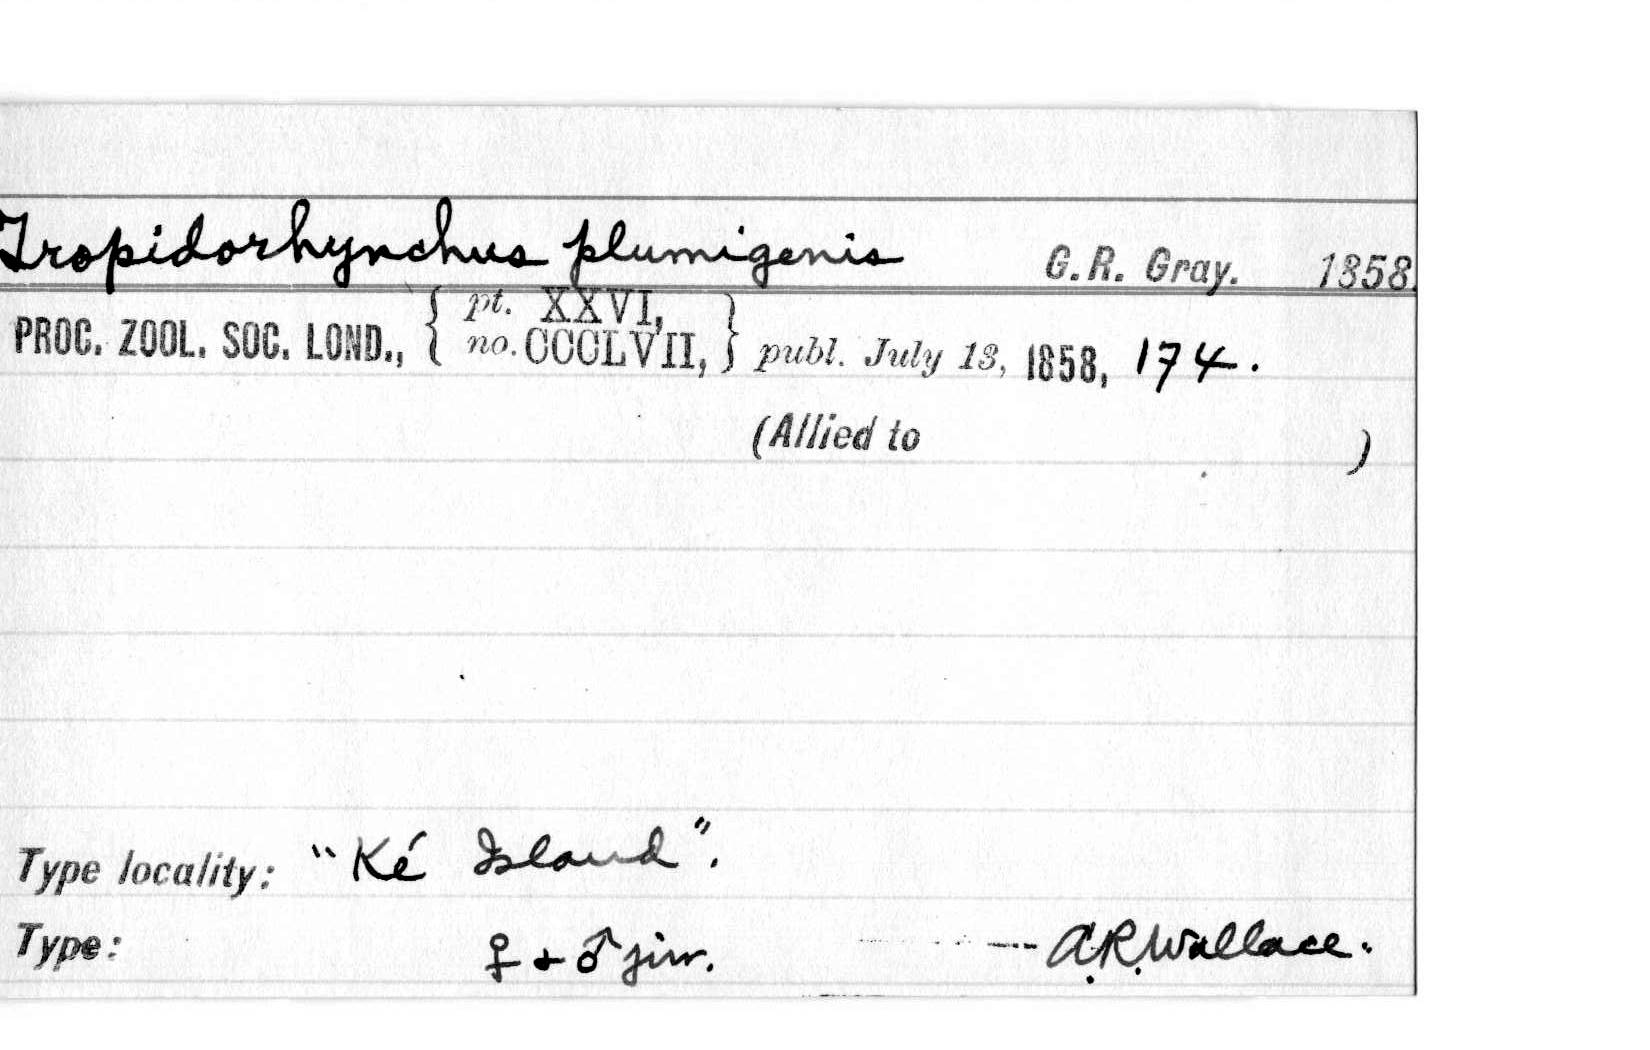 Tropidorhynchus plumigenis G.R. Gray. 1858.
PROC. ZOOL. SOC. LOND., { pt. XXVI, no. CCCLVII, } publ. July 13, 1858, 174.
(Allied to )
Type locality: "Ké Island".
Type: ♀ + ♂ juv. A.R. Wallace.